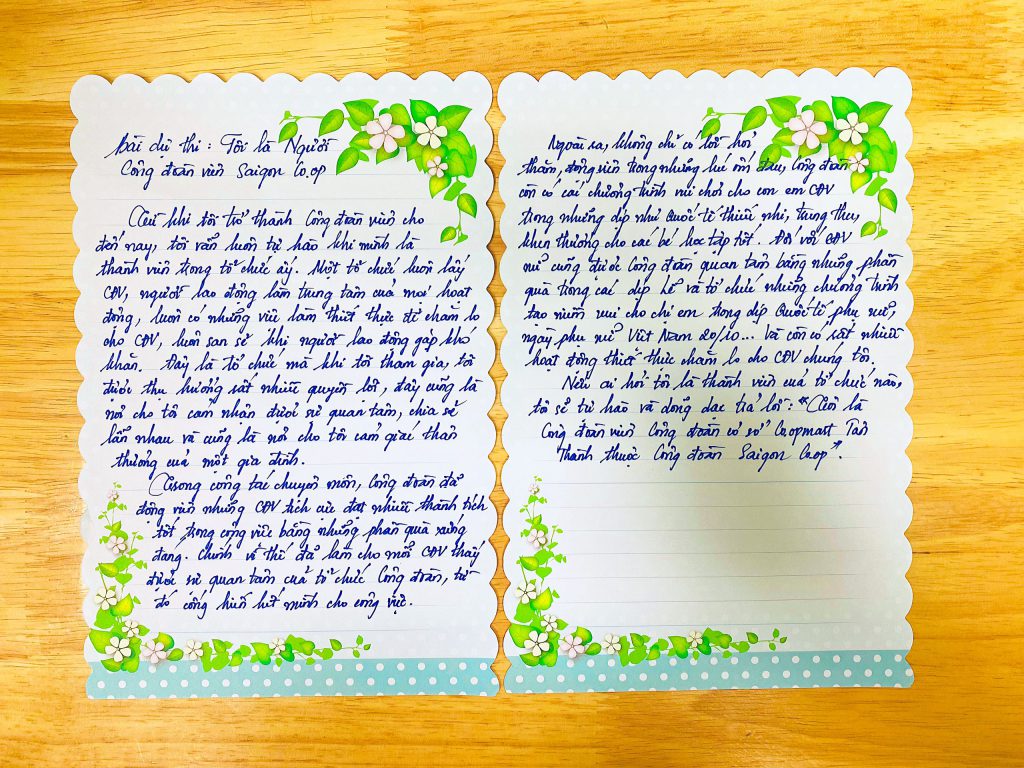 Bài dự thi: Tôi là Người
Công đoàn viên Saigon Co.op
Từ khi tôi trở thành Công đoàn viên cho
đến nay, tôi vẫn luôn tự hào khi mình là
thành viên trong tổ chức ấy. Một tổ chức luôn lấy
CĐV, người lao động làm trung tâm của mọi hoạt
động, luôn có những việc làm thiết thực để chăm lo
cho CĐV, luôn san sẻ khi người lao động gặp khó
khăn. Đây là tổ chức mà khi tôi tham gia, tôi
được thụ hưởng rất nhiều quyền lợi, đây cũng là
nơi cho tôi cảm nhận được sự quan tâm, chia sẻ
lẫn nhau và cũng là nơi cho tôi cảm giác thân
thương của một gia đình.
Trong công tác chuyên môn, Công đoàn đã
động viên những CĐV tích cực đạt nhiều thành tích
tốt trong công việc bằng những phần quà xứng
đáng. Chính vì thế đã làm cho mỗi CĐV thấy
được sự quan tâm của tổ chức Công đoàn, từ
đó cống hiến hết mình cho công việc.
Ngoài ra, không chỉ có lời hỏi
thăm, động viên trong những lúc ốm đau, Công đoàn
còn có các chương trình vui chơi cho con em CĐV
trong những dịp như Quốc tế thiếu nhi, trung thu,
khen thưởng cho các bé học tập tốt. Đối với CĐV
nữ cũng được Công đoàn quan tâm bằng những phần
quà trong các dịp lễ và tổ chức những chương trình
tạo niềm vui cho chị em trong dịp Quốc tế phụ nữ,
ngày phụ nữ Việt Nam 20/10... Và còn có rất nhiều
hoạt động thiết thực chăm lo cho CĐV chúng tôi.
Nếu ai hỏi tôi là thành viên của tổ chức nào,
tôi sẽ tự hào và dõng dạc trả lời: "Tôi là
Công đoàn viên Công đoàn cơ sở Co.opmart Tân
Thành thuộc Công đoàn Saigon Co.op".